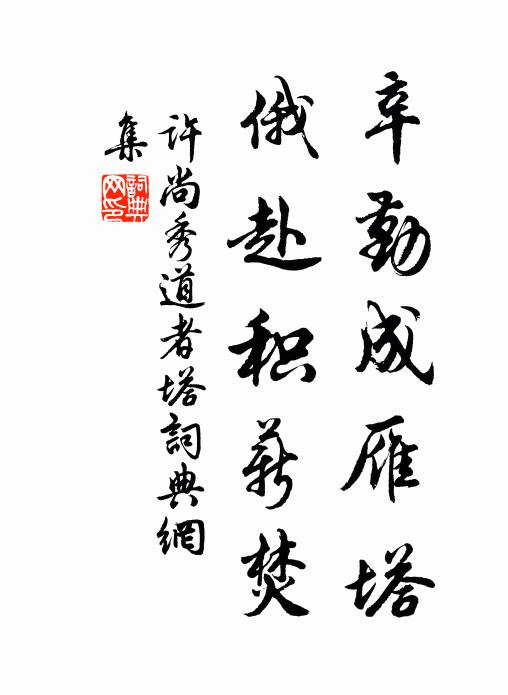 辛勤成雁塔
俄赴积薪焚
許尚秀道者塔詞典網
集
詞典
网印